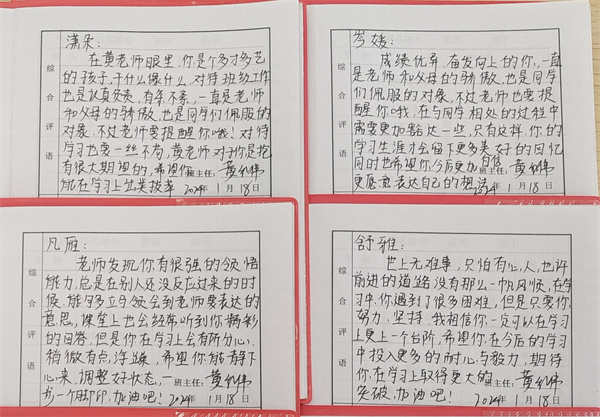 潇朵：
在黄老师眼里，你是个多才多艺
的孩子，干什么像什么，对待班级工作
也是认真负责，有条不紊，一直是老师
和父母的骄傲，也是同学们佩服的
对象，不过老师要提醒你哦！对待
学习也要一丝不苟，黄老师对于你是抱
有很大期望的，希望你
能在学习上出类拔萃
综合评语
班主任：
2024年1月18日
岑媛：
成绩优异，奋发向上的你，一直
是老师和父母的骄傲，也是同学
们佩服的对象，不过老师也要提
醒你哦，在与同学相处的过程中
需要更加豁达一些，只有这样，你的
学习生涯才会留下更多美好的回忆
同时也希望你今后更加自信
更愿意表达自己的想法
综合评语
班主任：
2024年1月18日
凡雁：
老师发现你有很强的领悟
能力，总是在别人还没反应过来的时
候，能够立马领会到老师要表达的
意思，课堂上也会经常听到你精彩
的回答，但是你在学习上会有所分心，
稍微有点浮躁，希望你能静下
心来，调整好状态，一
步一个脚印，加油吧！
综合评语
班主任：
2024年1月18日
舒雅：
世上无难事，只怕有心人，也许
前进的道路没有那么一帆风顺，在学
习中，你遇到了很多困难，但是只要你
努力、坚持，我相信你一定可以在学习
上更上一个台阶，希望你在今后的学习
中投入更多的耐心与毅力，期待
你在学习上取得更大的
突破，加油吧！
综合评语
班主任：
2024年1月18日